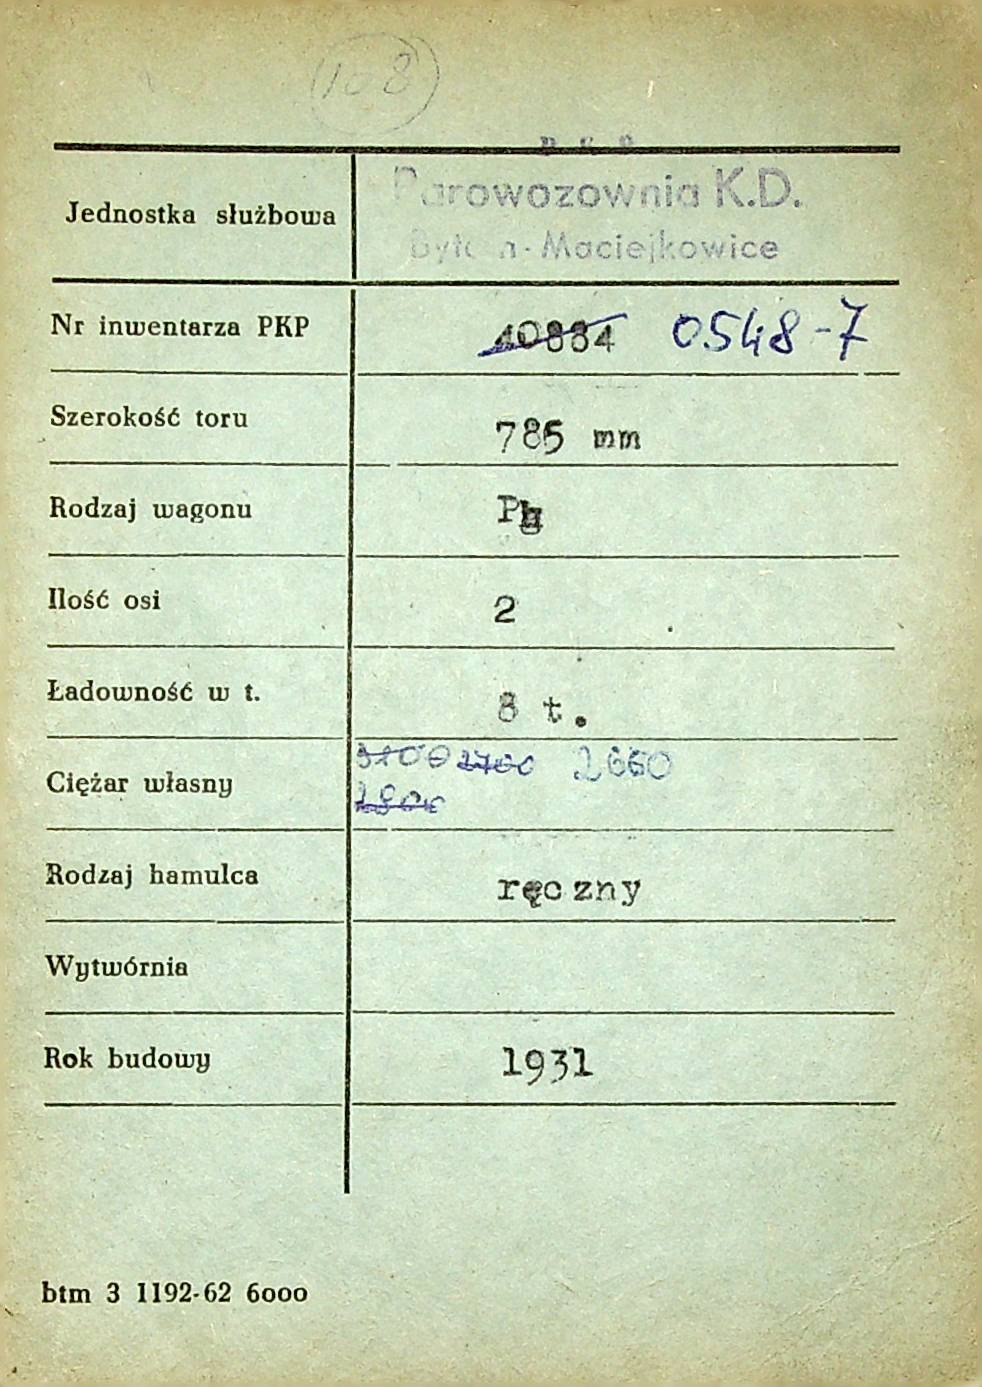 108
Parowozownia K.D.
Jednostka służbowa
Bytom-Maciejkowice
Nr inwentarza PKP 40884 0548-7
Szerokość toru 785 mm
Rodzaj wagonu
Ilość osi 2
Ładowność w t. 8 t.
Ciężar własny 3100 2700 2660
2800
Rodzaj hamulca ręczny
Wytwórnia
Rok budowy 1931
btm 3 1192-62 6000